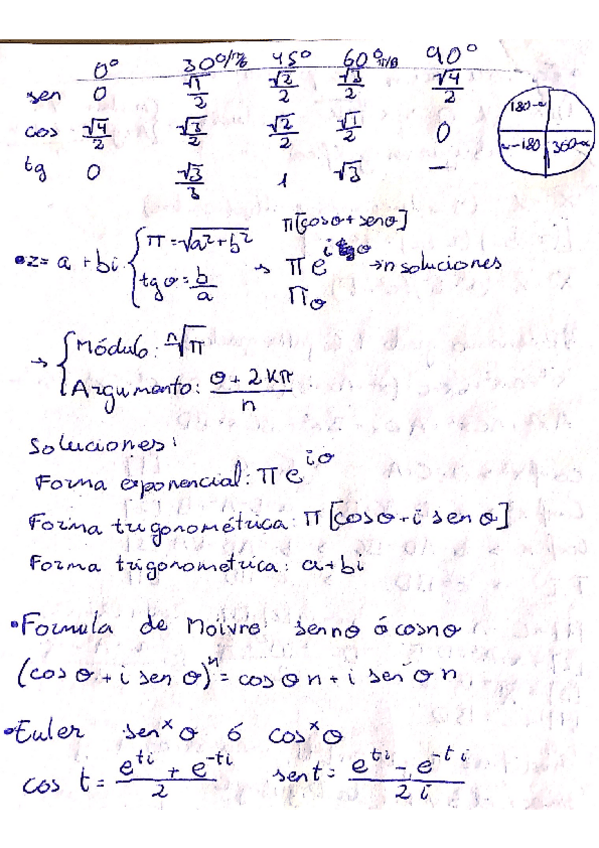 0° 30° π/6 45° 60° π/3 90°
sen 0 √1/2 √2/2 √3/2 √4/2
cos √4/2 √3/2 √2/2 √1/2 0
tg 0 √3/3 1 √3 —
180-α
α-180 360-α
π[cosθ + senθ]
• z = a + bi { π = √(a²+b²)
tg θ = b/a
→ π e^(iθ) → n soluciones
π_θ
→ { Módulo: ⁿ√π
Argumento: (θ + 2Kπ)/n
Soluciones:
Forma exponencial: π e^(iθ)
Forma trigonométrica: π [cosθ + i senθ]
Forma trigonometrica: a + bi
• Formula de Moivre sen nθ ó cos nθ
(cos θ + i sen θ)ⁿ = cos θn + i sen θn
• Euler senˣθ ó cosˣθ
cos t = (e^(ti) + e^(-ti))/2 sen t = (e^(ti) - e^(-ti))/(2i)